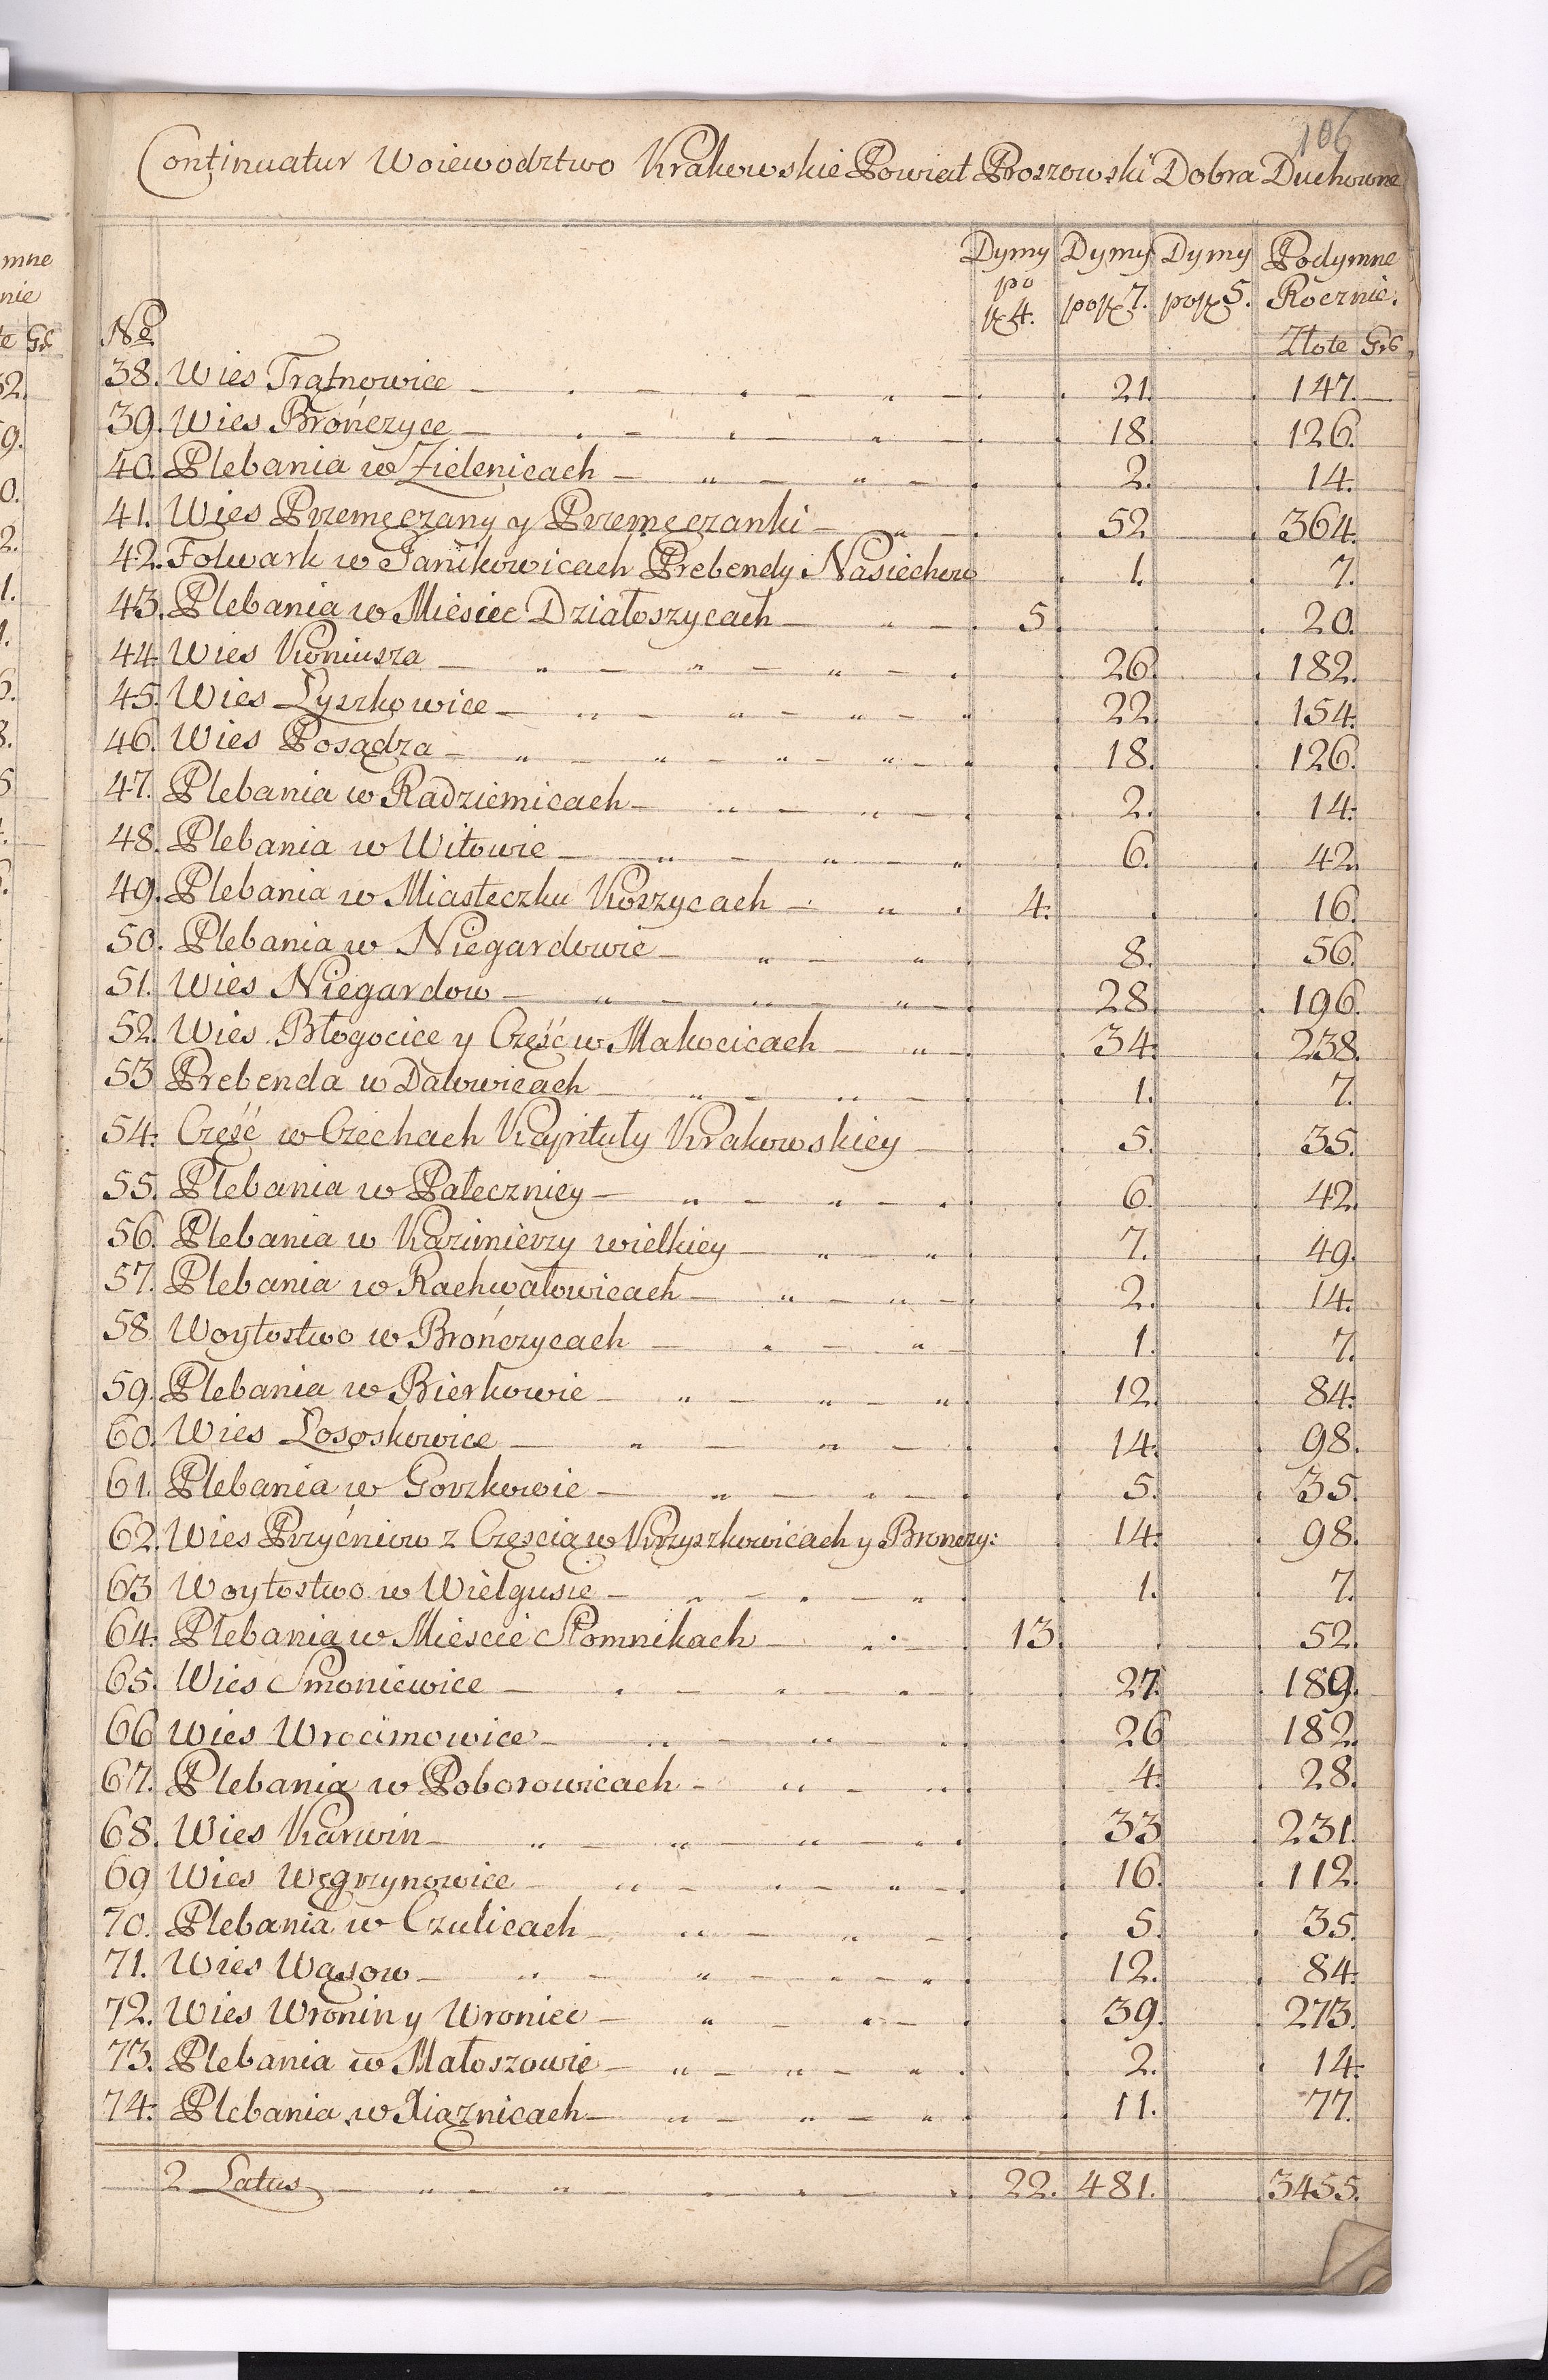 106
Continuatur Woiewodztwo Krakowskie Powiat Proszowski Dobra Duchowne
Dymy Dymy Dymy Podymne
po
zł 4. po zł 7. po zł 5. Rocznie.
No Złote Grs
38. Wies Trątnowice 21. 147.
39. Wies Brończyce 18. 126.
40. Plebania w Zielenicach 2. 14.
41. Wies Przemęczany y Przemęczanki 52. 364.
42. Folwark w Janikowicach Prebendy Nasiechow 1. 7.
43. Plebania w Miescie Działoszycach 5. 20.
44. Wies Koniusza 26. 182.
45. Wies Łyszkowice 22. 154.
46. Wies Posądza 18. 126.
47. Plebania w Radziemicach 2. 14.
48. Plebania w Witowie 6. 42.
49. Plebania w Miasteczku Koszycach 4. 16.
50. Plebania w Niegardowie 8. 56.
51. Wies Niegardow 28. 196.
52. Wies Błogocice y Część w Makocicach 34. 238.
53 Prebenda w Dalowicach 1. 7.
54. Część w Czechach Kapituły Krakowskiey 5. 35.
55. Plebania w Pałeczniey 6. 42.
56. Plebania w Kazimierzy wielkiey 7. 49.
57. Plebania w Rachwałowicach 2. 14.
58. Woytostwo w Brończycach 1. 7.
59. Plebania w Bierkowie 12. 84.
60. Wies Łososkowice 14. 98.
61. Plebania w Gorzkowie 5. 35.
62. Wies Przyćniow z Częscią w Krzyszkowicach y Bronczy: 14. 98.
63 Woytostwo w Wielgusie 1. 7.
64. Plebania w Miescie Słomnikach 13. 52.
65. Wies Smoniewice 27. 189.
66 Wies Wrocimowice 26 182.
67. Plebania w Poborowicach 4. 28.
68. Wies Karwin 33 231.
69 Wies Węgrzynowice 16. 112.
70. Plebania w Czulicach 5. 35.
71. Wies Wąsow 12. 84.
72. Wies Wronin y Wroniec 39. 273.
73. Plebania w Małoszowie 2. 14.
74. Plebania w Xiąznicach 11. 77.
2 Latus 22. 481. 3455.